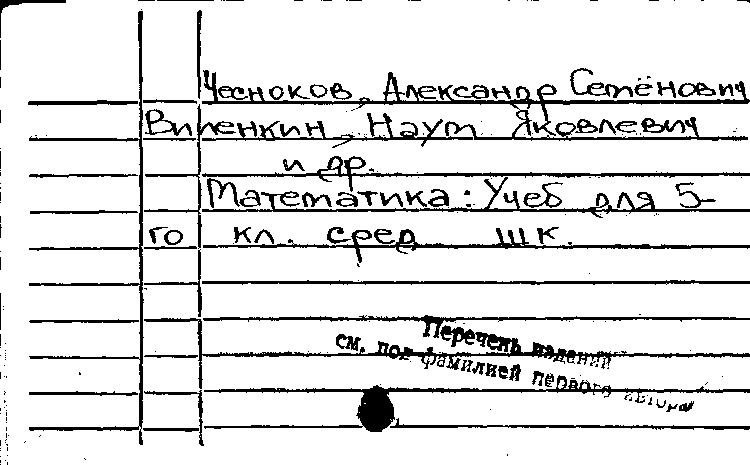 Чесноков, Александр Семёнович
Виленкин, Наум Яковлевич
и др.
Математика: Учеб для 5-
го кл. сред шк.
Перечень изданий
см. под фамилией первого автора